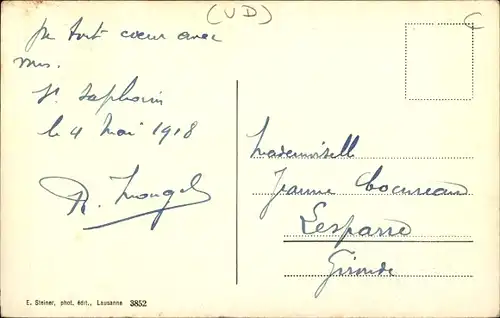 (VD)
C
De tout coeur avec
vous.
St. Saphorin
le 4 Mai 1918
R. Mongel
Mademoiselle
Jeanne Cocureau
Lesparre
Gironde
E. Steiner, phot. édit., Lausanne 3852